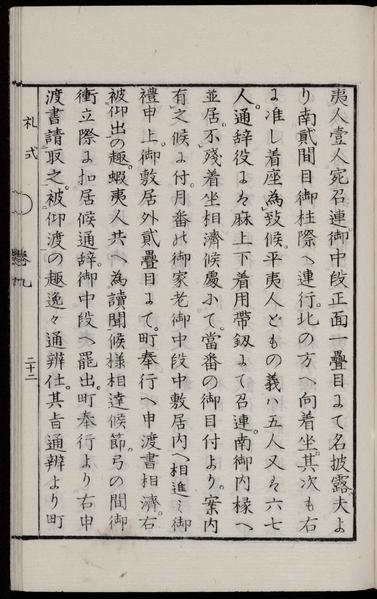 夷人壹人宛召連。御中段正面一疊目ニて名披露。夫よ
り南貳間目御柱際へ連行。北の方へ向着坐。其次も右
ニ准し着座爲致候。平夷人どもの義ハ五人又は六七
人。通辞役には麻上下着用帶釼ニて召連。南御内椽へ
並居。不殘着坐相濟候處ニて。當番の御目付より。案内
有之候に付。月番の御家老御中段中敷居内へ相進ミ御
禮申上。御敷居外貳疊目ニて。町奉行へ申渡書相濟。右
被仰出の趣。蝦夷人共へ為讀聞候様相達候節。弓の間御
衝立際に扣居候通辞。御中段へ罷出。町奉行より右申
渡書請取之。被仰渡の趣逸々通辨仕。其旨通辨より町
礼式
巻九
二十二